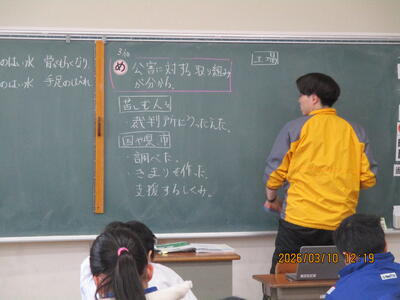 のはい水 骨がもろくなり
のはい水 手足のしびれ
3/10
め 公害に対する取り組み
が分かる。
苦しむ人々
裁判所にうったえた。
国や県、市
・調べた。
・きまりを作った。
支援するしくみ。
工場
2026/03/10 12:19